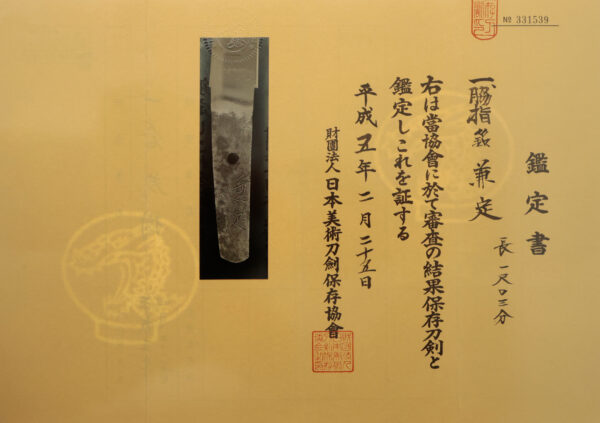 № 331539
鑑定書
一、脇指 銘 兼定
長 一尺〇三分
右は當協會に於て審査の結果保存刀剣と
鑑定しこれを証する
平成五年二月二十五日
財團法人 日本美術刀劍保存協會